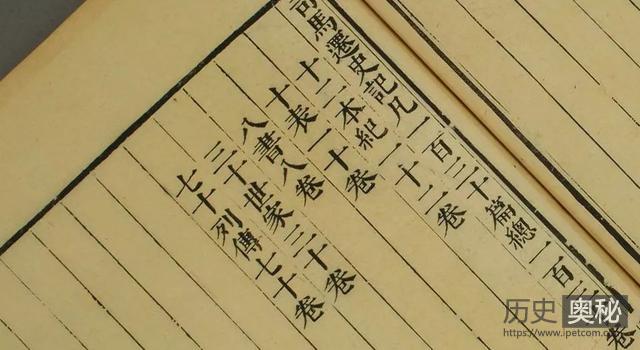 司馬遷史記凡一百三十篇總一百三卷
十二本紀一十二卷
十表一十卷
八書八卷
三十世家三十卷
七十列傳七十卷
历史奥秘